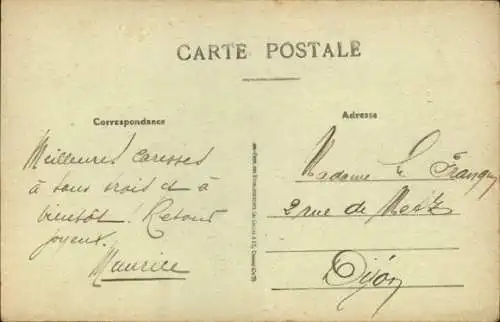 CARTE POSTALE
Correspondance
Adresse
Meilleures caresses
à tous trois et à
bientôt! Retour
joyeux.
Maurice
Madame Le
2 rue de Metz
Dijon